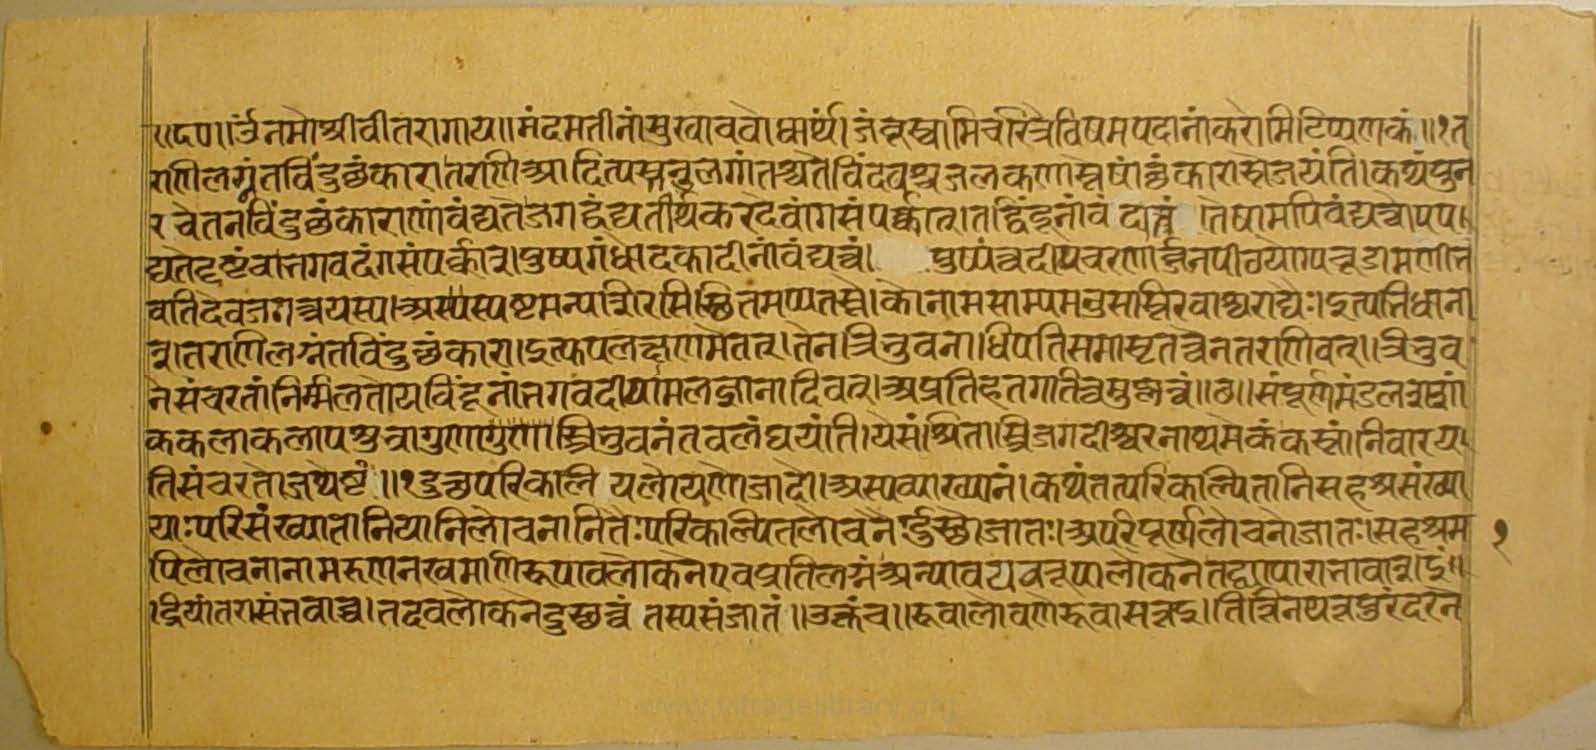 ॥ द ण॥ र्उ नमो श्री वीतरागाय॥ मंदमतीनां सुखावबोधार्थं। जंबूस्वामिचरित्रे विषमपदानां करोमि टिप्पणकं॥१ त
रणिलग्नंतविंदुछंकारा। तरणि आदित्यस्तत्र लगांतश्चते विंदवश्च जलकणास्तेषां छंकारास्तेजयंति। कथं पुन
रचेतनविंदुछंकाराणां वंद्यते जगद्वंद्यतीर्थकरदेवांगसंपर्कात्। तद्विंदूनां वंदात्वं। तेषामपि वंद्यत्वोपप
द्यते दृष्टं वा भगवदंगसंपर्कात्। पुष्पगंधोदकादीनां वंद्यत्वं। पुष्पं त्वदीयचरणार्च्चनपीठयोगाच्चूडामणीभ
वति देव जगत्त्रयस्य। अस्पृश्यस्पष्टमन्यशिरसि स्थितमप्यतस्ते। को नाम साम्यमनुसास्विरवाश्वराद्यैः। इत्यभिधाना
त्। तरणिलग्नंतविंदुछंकारा। इत्युपलक्षणमेतत्। तेन त्रिभुवनाधिपतिसमासृतत्वेन तरणिवत्। त्रिभुव
ने संचरतां निर्म्मलतोयविंदूनां भगवदीयामलज्ञानादिवत्। अप्रतिहतगतित्वमुक्तत्वं॥ ठ॥ संपूर्णमंडलशशां
ककलाकलापशुभ्रागुणास्त्रिभुवनं तव लंघयंति। ये संश्रितास्त्रिजगदीश्वरनाथमेकं कस्तां निवारय
ति संचरतो जथेष्टं॥१ डुच्छपरिकालि यलोयणो जादो। अस्य व्याख्यानं। कथं तत्परिकल्पितानि सह असंख्या
याः परिसंख्याभो नि यानि लोचनानि तैः परिकल्पितलोचनैर्डुस्छो जातः। अपरिपूर्णलोचनो जातः। सह श्रम
पि लोचनानामरुणनखमणिरूपावलोकने एव प्रतिलग्नं अन्यावयवरूपालोकने तद्व्यापाराभावात् इं॥
।द्रियांतरासंभवाच्च। तदवलोकने दुस्छत्वं तस्य संजातं॥ उक्तं च॥ रूवालोवणे रूवासत्तइ। तित्तिनथत्र पुरंदरनेन
१
www.vitragelibrary.org